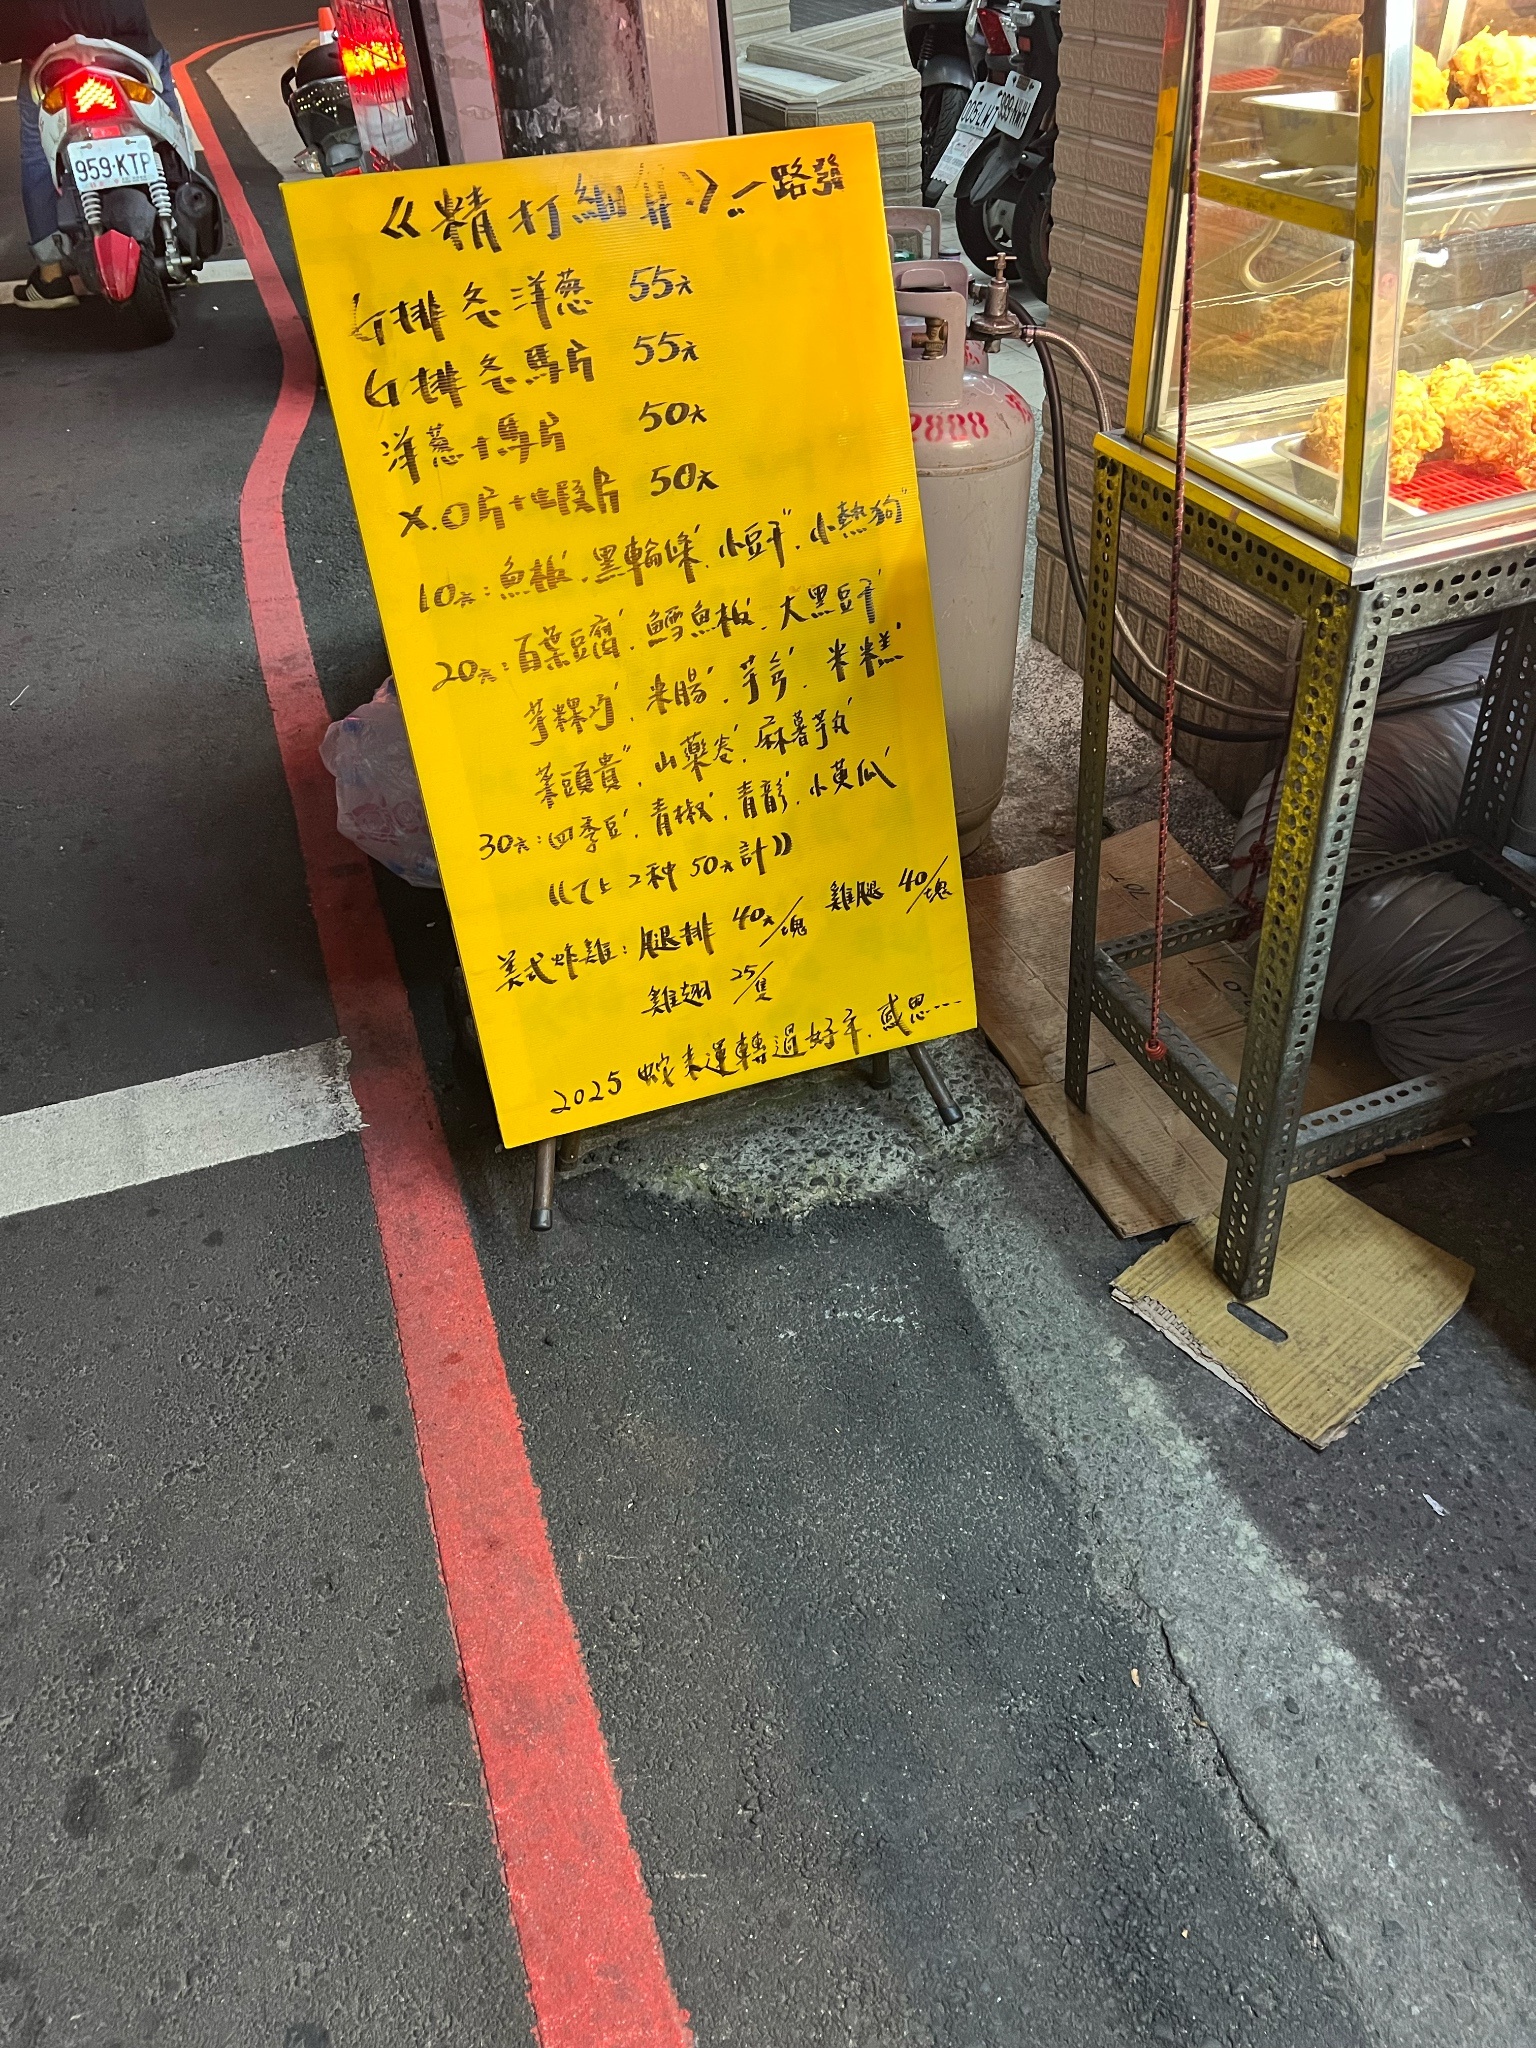 959-KTP
《精打細算》一路發
排 洋蔥 55元
排 馬片 55元
洋蔥+馬片 50元
X.O片+蝦片 50元
10元:魚板、黑輪條、小豆干、小熱狗
20元:百葉豆腐、鱈魚板、大黑豆干
芋粿巧、米腸、芋 、米糕
頭貴、山藥卷、麻薯芋丸
30元:四季豆、青椒、青 、小黃瓜
《以上2种50元計》
美式炸雞:腿排 40元/塊 雞腿 40/塊
雞翅 25/隻
2025 蛇來運轉過好年、感恩……
2888